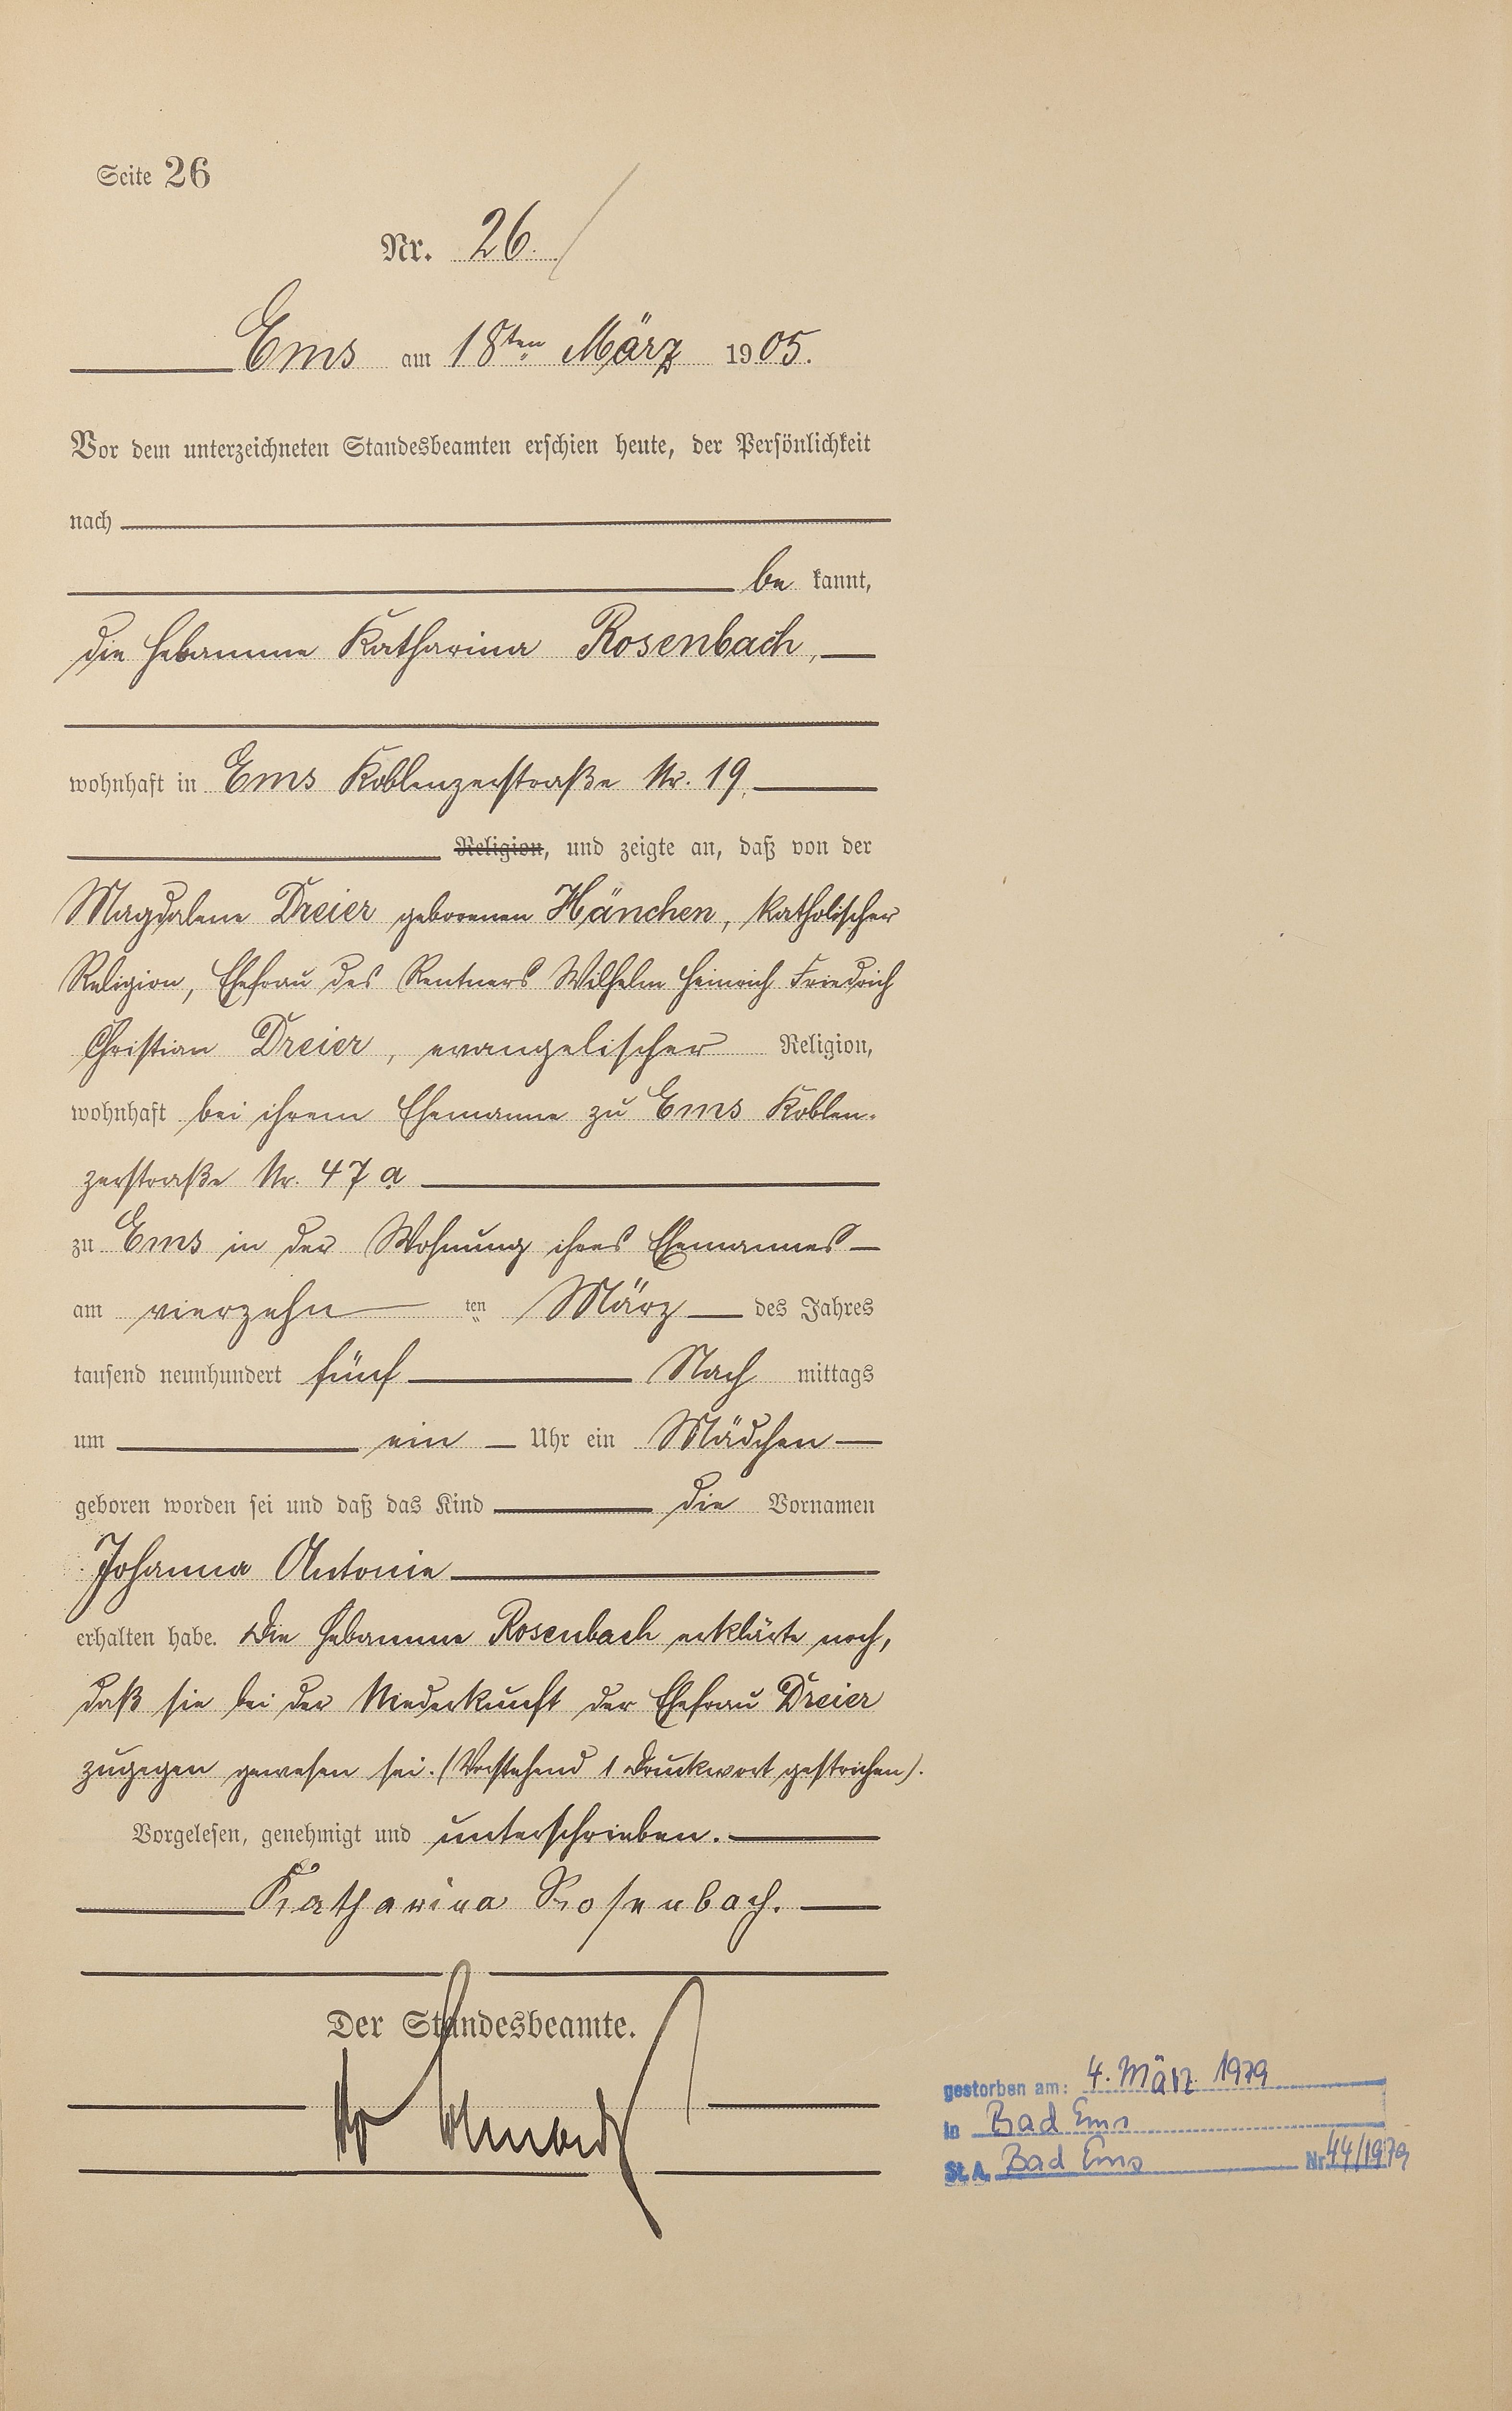 Seite 26
Nr. 26.
Ems am 18ten März 1905.
Vor dem unterzeichneten Standesbeamten erschien heute, der Persönlichkeit
nach
be kannt,
die Hebamme Katharina Rosenbach,
wohnhaft in Ems Koblenzerstraße Nr. 19,
Religion, und zeigte an, daß von der
Magdalene Dreier geborenen Hänchen, katholischer
Religion, Ehefrau des Rentners Wilhelm Heinrich Friedrich
Christian Dreier, evangelischer Religion,
wohnhaft bei ihrem Ehemanne zu Ems Koblen-
zerstraße Nr. 47 a
zu Ems in der Wohnung ihres Ehemannes
am vierzehn ten März des Jahres
tausend neunhundert fünf Nach mittags
um ein Uhr ein Mädchen
geboren worden sei und daß das Kind die Vornamen
Johanna Antonie
erhalten habe. Die Hebamme Rosenbach erklärte noch,
daß sie bei der Niederkunft der Ehefrau Dreier
zugegen gewesen sei. (Vorstehend 1 Druckwort gestrichen).
Vorgelesen, genehmigt und unterschrieben.
Katharina Rosenbach.
Der Standesbeamte.
gestorben am: 4. März 1979
in Bad Ems
St. A. Bad Ems Nr. 44/1979